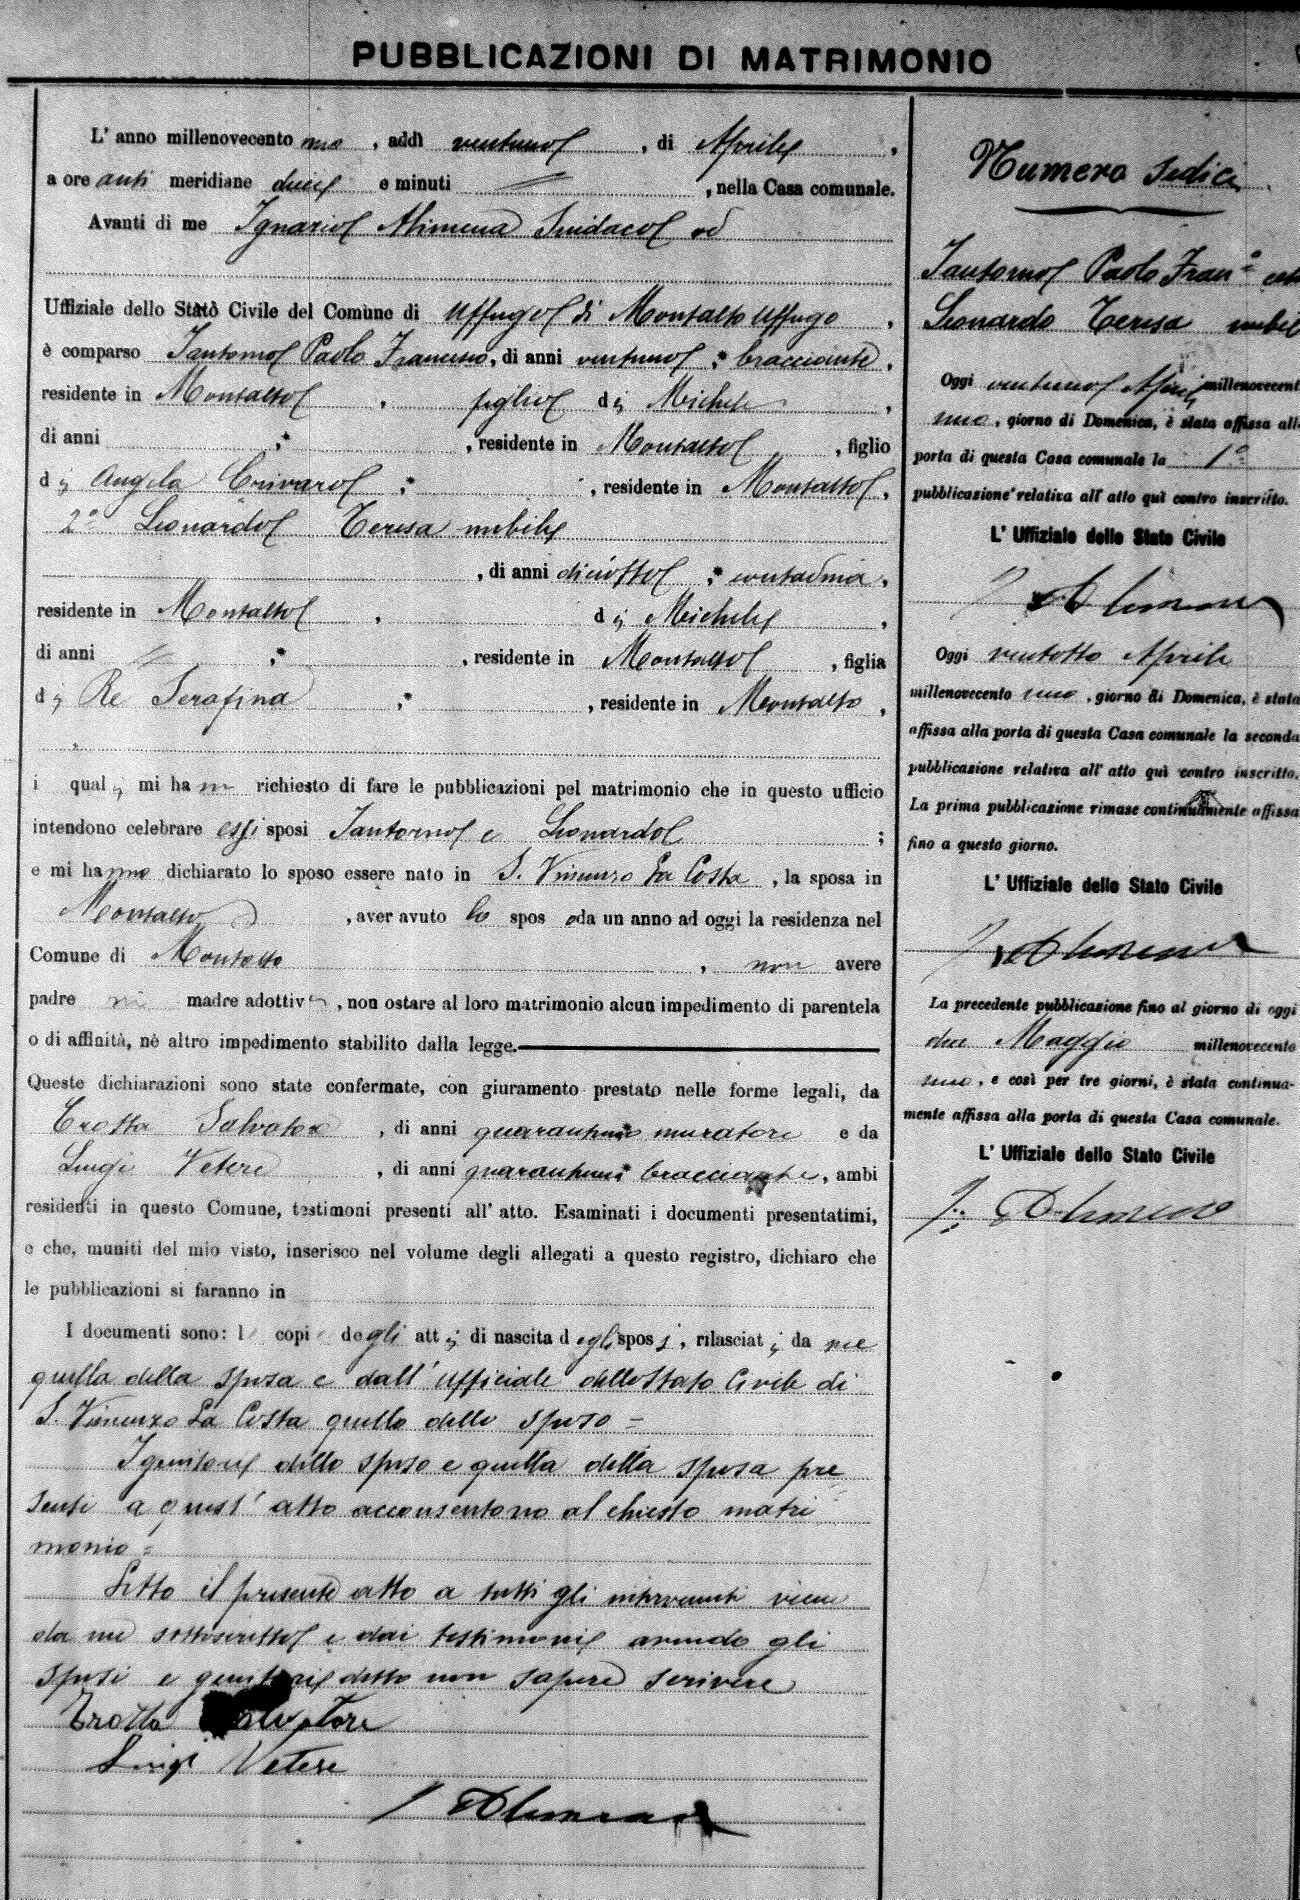 PUBBLICAZIONI DI MATRIMONIO
L' anno millenovecento uno, addì ventuno, di Aprile,
a ore anti meridiane dieci e minuti =, nella Casa comunale.
Avanti di me Ignazio Alimena Sindaco ed
Uffiziale dello Stato Civile del Comune di Uffugo di Montalto Uffugo,
è comparso Santorno Paolo Francesco, di anni ventuno, bracciante,
residente in Montalto, figlio di Michele,
di anni, residente in Montalto, figlio
di Angela Crivaro, residente in Montalto,
2° Leonardo Teresa nubile
, di anni diciotto, contadina,
residente in Montalto, di Michele,
di anni, residente in Montalto, figlia
di Re Serafina, residente in Montalto,
i quali mi hanno richiesto di fare le pubblicazioni pel matrimonio che in questo ufficio
intendono celebrare essi sposi Santorno e Leonardo;
e mi hanno dichiarato lo sposo essere nato in S. Vincenzo La Costa, la sposa in
Montalto, aver avuto lo sposo da un anno ad oggi la residenza nel
Comune di Montalto, non avere
padre nè madre adottivi, non ostare al loro matrimonio alcun impedimento di parentela
o di affinità, nè altro impedimento stabilito dalla legge.
Queste dichiarazioni sono state confermate, con giuramento prestato nelle forme legali, da
Trotta Salvatore, di anni quarantuno muratore e da
Luigi Vetere, di anni bracciante, ambi
residenti in questo Comune, testimoni presenti all' atto. Esaminati i documenti presentatimi,
e che, muniti del mio visto, inserisco nel volume degli allegati a questo registro, dichiaro che
le pubblicazioni si faranno in
I documenti sono: le copie degli atti di nascita degli sposi, rilasciati da me
quella della sposa e dall' ufficiale dello Stato Civile di
S. Vincenzo La Costa quello dello sposo =
I genitori dello sposo e quella della sposa pre
senti a quest' atto acconsentono al chiesto matri
monio =
Letto il presente atto a tutti gli intervenuti viene
da me sottoscritto e dai testimoni avendo gli
sposi e genitori detto non sapere scrivere
Trotta Salvatore
Luigi Vetere
I Alimena
Numero sedici
Santorno Paolo Fran° con
Leonardo Teresa nubile
Oggi ventuno Aprile millenovecento
uno, giorno di Domenica, è stata affissa alla
porta di questa Casa comunale la 1ª
pubblicazione relativa all' atto quì contro inscritto.
L' Uffiziale dello Stato Civile
I Alimena
Oggi ventotto Aprile
millenovecento uno, giorno di Domenica, è stata
affissa alla porta di questa Casa comunale la seconda
pubblicazione relativa all' atto quì contro inscritto.
La prima pubblicazione rimase continuamente affissa
fino a questo giorno.
L' Uffiziale dello Stato Civile
I Alimena
La precedente pubblicazione fino al giorno di oggi
due Maggio millenovecento
uno, e così per tre giorni, è stata continua-
mente affissa alla porta di questa Casa comunale.
L' Uffiziale dello Stato Civile
I. Alimena